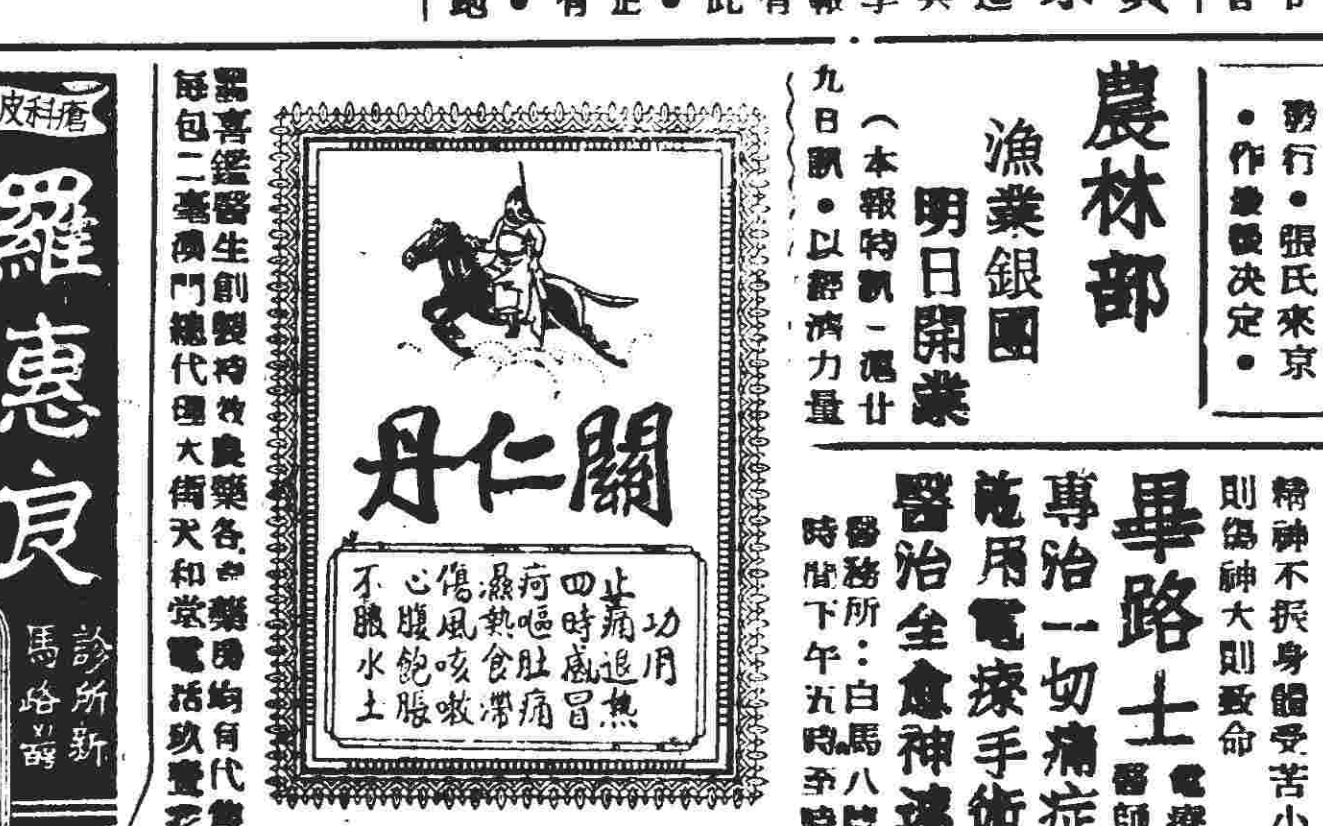 勢行●張氏來京
●作最後決定●
農林部
漁業銀團
明日開業
（本報特訊）滬廿
九日訊●以經濟力量
精神不振身體受苦小
則傷神大則致命
畢路士
電療
醫師
專治一切痛症
施用電療手術
醫治全愈神
醫務所：白馬八
時間下午五時至
關仁丹
功用
止痛退熱
四時感冒
疴嘔肚痛
濕熱食滯
傷風咳嗽
心腹飽脹
不服水土
喜鑑醫生創製特效良藥各藥房均有代
每包二毫澳門總代理大街天和堂電話玖壹
皮科瘡
羅惠良
診所新
馬路